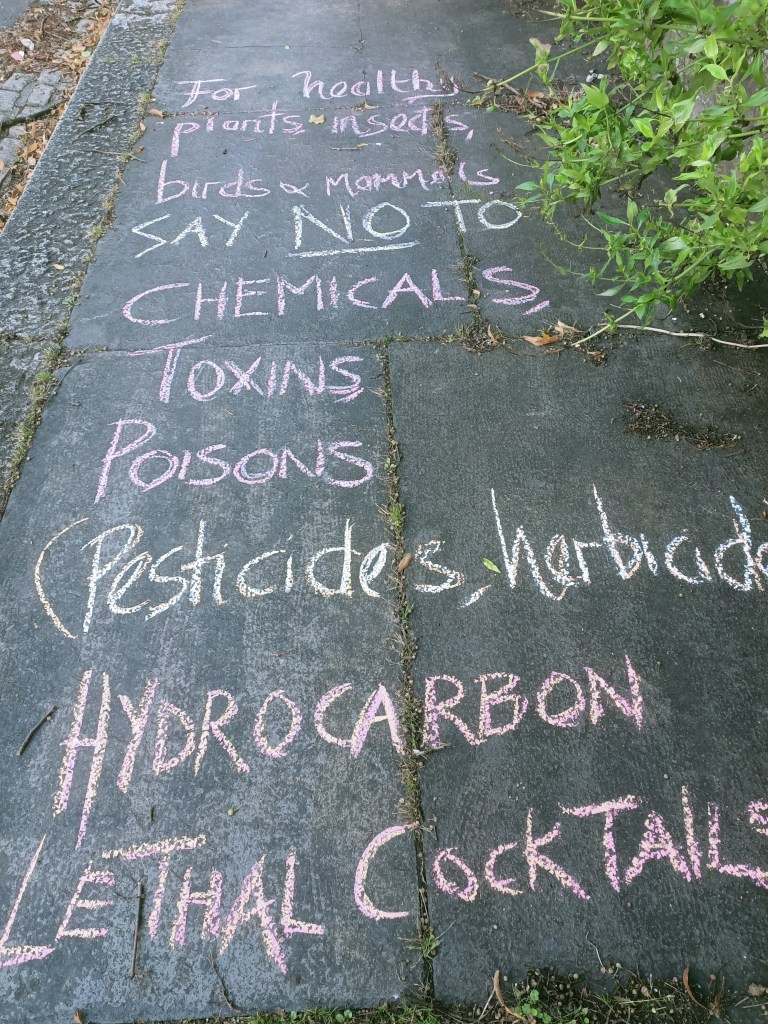 For health,
plants, insects,
birds & mammals
SAY NO TO
CHEMICALS,
TOXINS,
POISONS
(Pesticides, herbicide
HYDROCARBON
LETHAL COCKTAILS